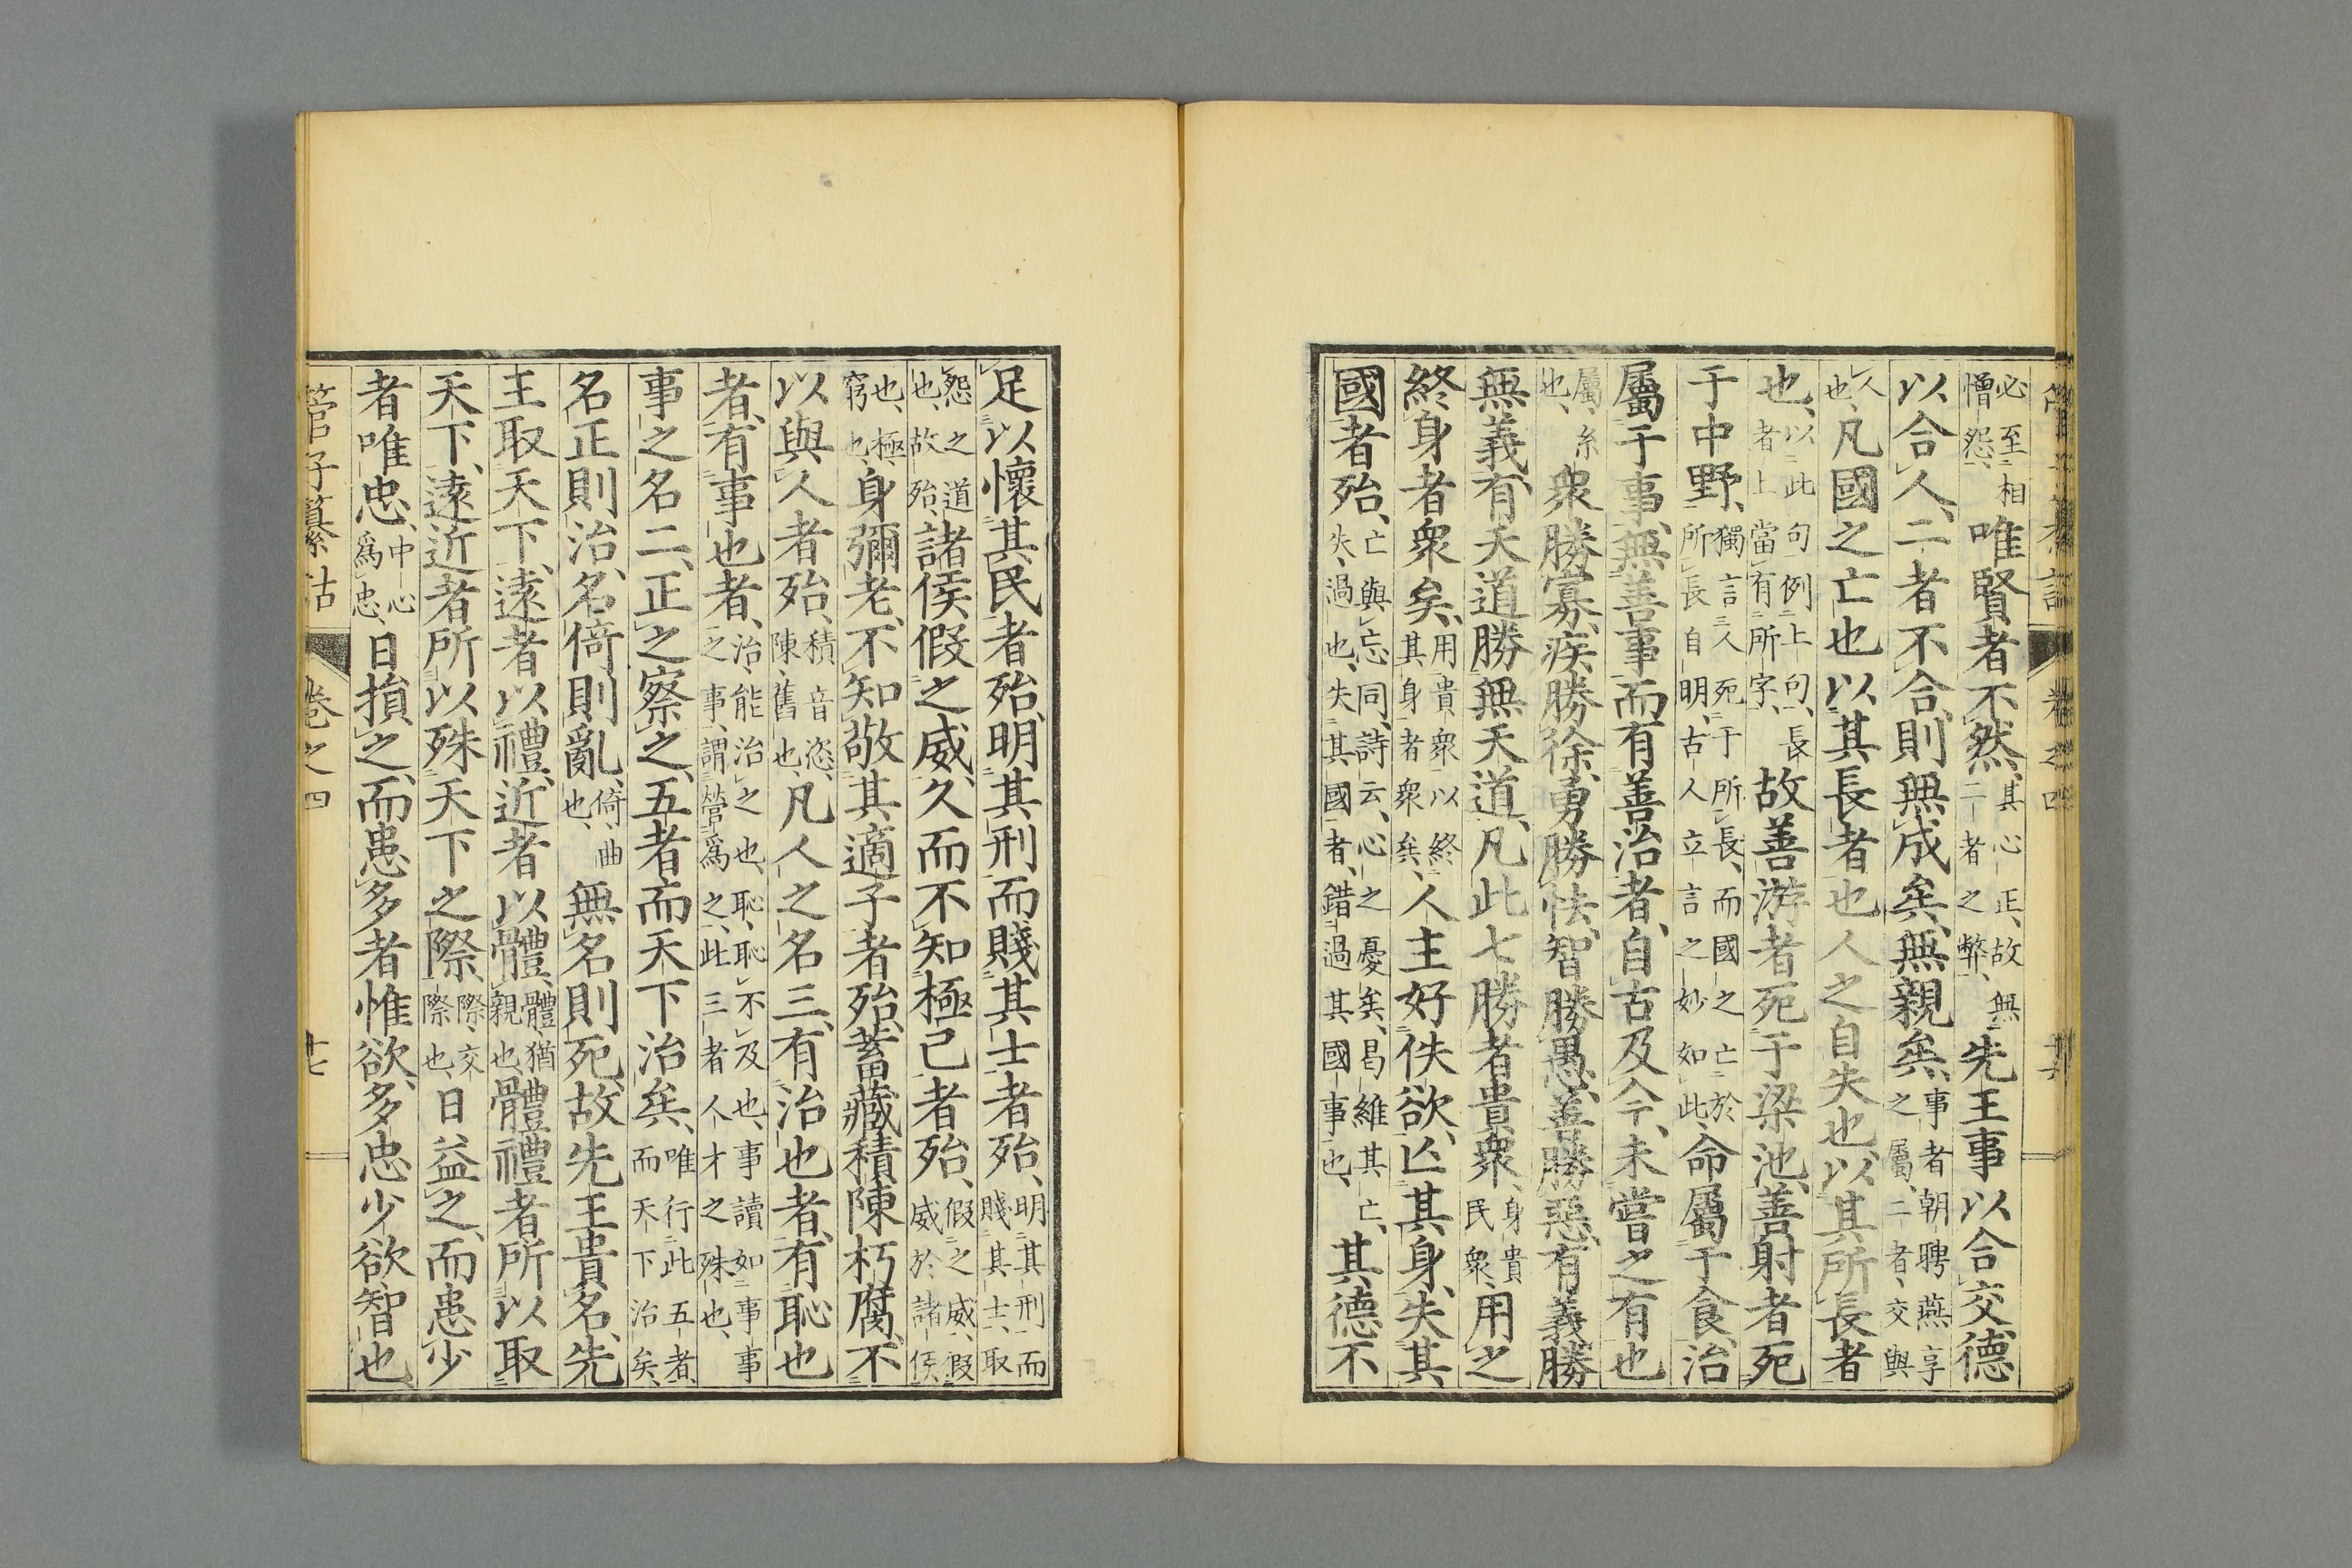 必至相憎怨、唯賢者不然、其心正、故無二者之弊、先王事以合交、德
以合人、二者不合、則無成矣、無親矣、事者朝聘燕享之屬、二者、交與
人也、凡國之亡也、以其長者也、人之自失也、以其所長者
也、以此句例上句、長者上當有所字、故善游者死于梁池、善射者死
于中野、獨言人死于所長、而國之亡於所長自明、古人立言之妙如此、命屬于食、治
屬于事、無善事而有善治者、自古及今、未嘗之有也
屬、系也、衆勝寡、疾勝徐、勇勝怯、智勝愚、善勝惡、有義勝
無義、有天道勝無天道、凡此七勝者貴衆、身貴民衆、用之
終身者衆矣、用貴衆以終其身者衆矣、人主好佚欲、亾其身、失其
國者殆、亡與忘同、詩云、心之憂矣、曷維其亡、失、過也、失其國者、錯過其國事也、其德不
足以懷其民者殆、明其刑而賤其士者殆、明其刑而賤其士、取
怨之道也、故殆、諸侯假之威、久而不知極己者殆、假之威、假威於諸侯
也、極、窮也、身彌老、不知敬其適子者殆、蓄藏積陳朽腐、不
以與人者殆、積音恣、陳、舊也、凡人之名三、有治也者、有恥也
者、有事也者、治、能治之也、恥、恥不及也、事讀如事事之事、謂營爲之、此三者人才之殊也、
事之名二、正之察之、五者而天下治矣、唯行此五者、而天下治矣、
名正則治、名倚則亂、倚、曲也、無名則死、故先王貴名、先
王取天下、遠者以禮、近者以體、體、猶親也、體禮者所以取
天下、遠近者所以殊天下之際、際、交際也、日益之、而患少
者唯忠、中心爲忠、日損之、而患多者惟欲、多忠少欲、智也
管子纂詁 卷之四 十七